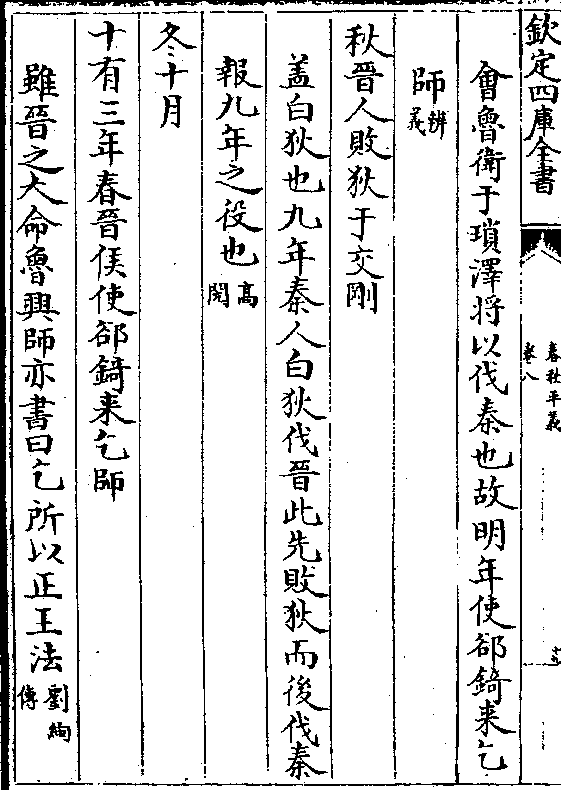 欽定四庫全書
春秋平義
卷八
會魯衛于瑣澤将以伐秦也故明年使郤錡来乞
師辨義
秋晉人敗狄于交剛
盖白狄也九年秦人白狄伐晉此先敗狄而後伐秦
報九年之役也高閌
冬十月
十有三年春晉侯使郤錡来乞師
雖晉之大命魯興師亦書曰乞所以正王法劉絢傳